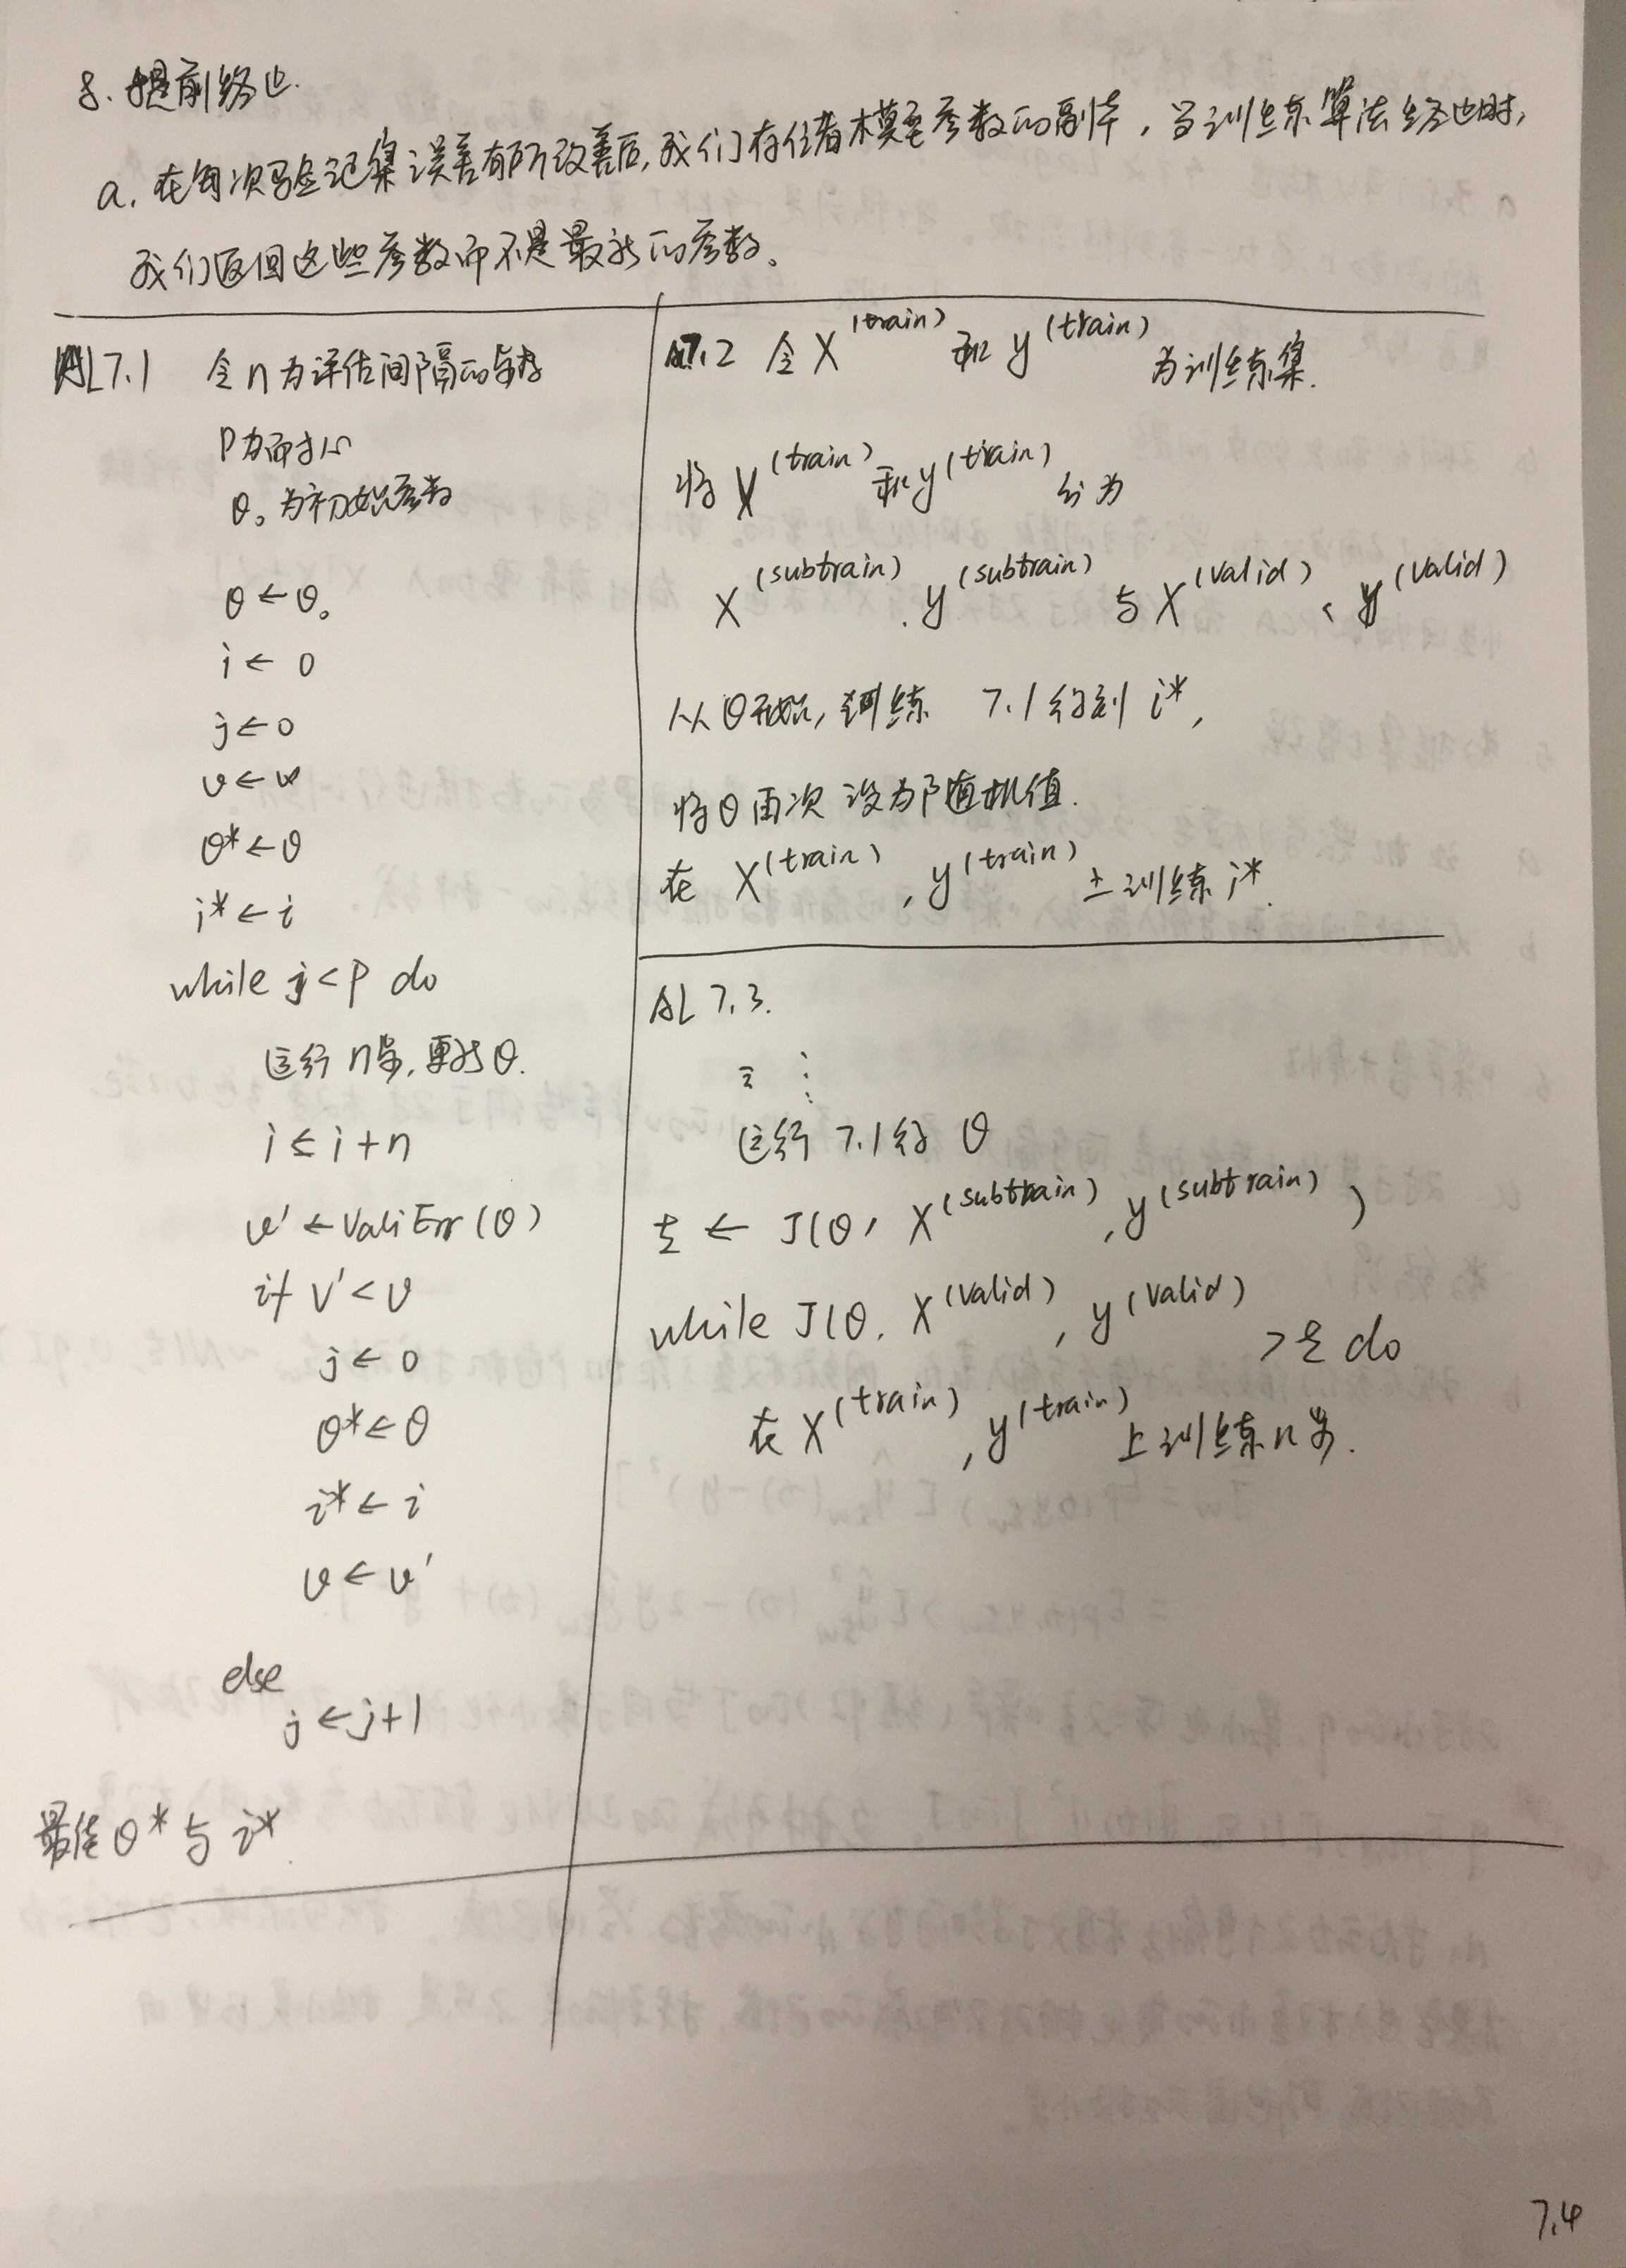 8. 提前终止.
a. 在每次验证集误差有所改善后,我们存储模型参数的副本,当训练算法终止时,
我们返回这些参数而不是最新的参数。
AL7.1 令 n 为评估间隔的步数
P为耐心
θ₀ 为初始参数
θ ← θ₀
i ← 0
j ← 0
v ← ∞
θ* ← θ
i* ← i
while j < P do
运行 n步,更新θ.
i ← i+n
v' ← ValiErr(θ)
if v' < v
j ← 0
θ* ← θ
i* ← i
v ← v'
else
j ← j+1
最佳 θ* 与 i*.
AL7.2 令 X^(train) 和 y^(train) 为训练集.
将 X^(train) 和 y^(train) 分为
X^(subtrain). y^(subtrain) 与 X^(valid)、y^(valid)
从θ开始,训练 7.1得到 i*,
将θ再次设为随机值.
在 X^(train), y^(train) 上训练 i*.
AL 7.3.
⋮
运行 7.1得 θ
ε ← J(θ, X^(subtrain), y^(subtrain))
while J(θ, X^(valid), y^(valid) > ε do
在 X^(train), y^(train) 上训练n步.
7.4